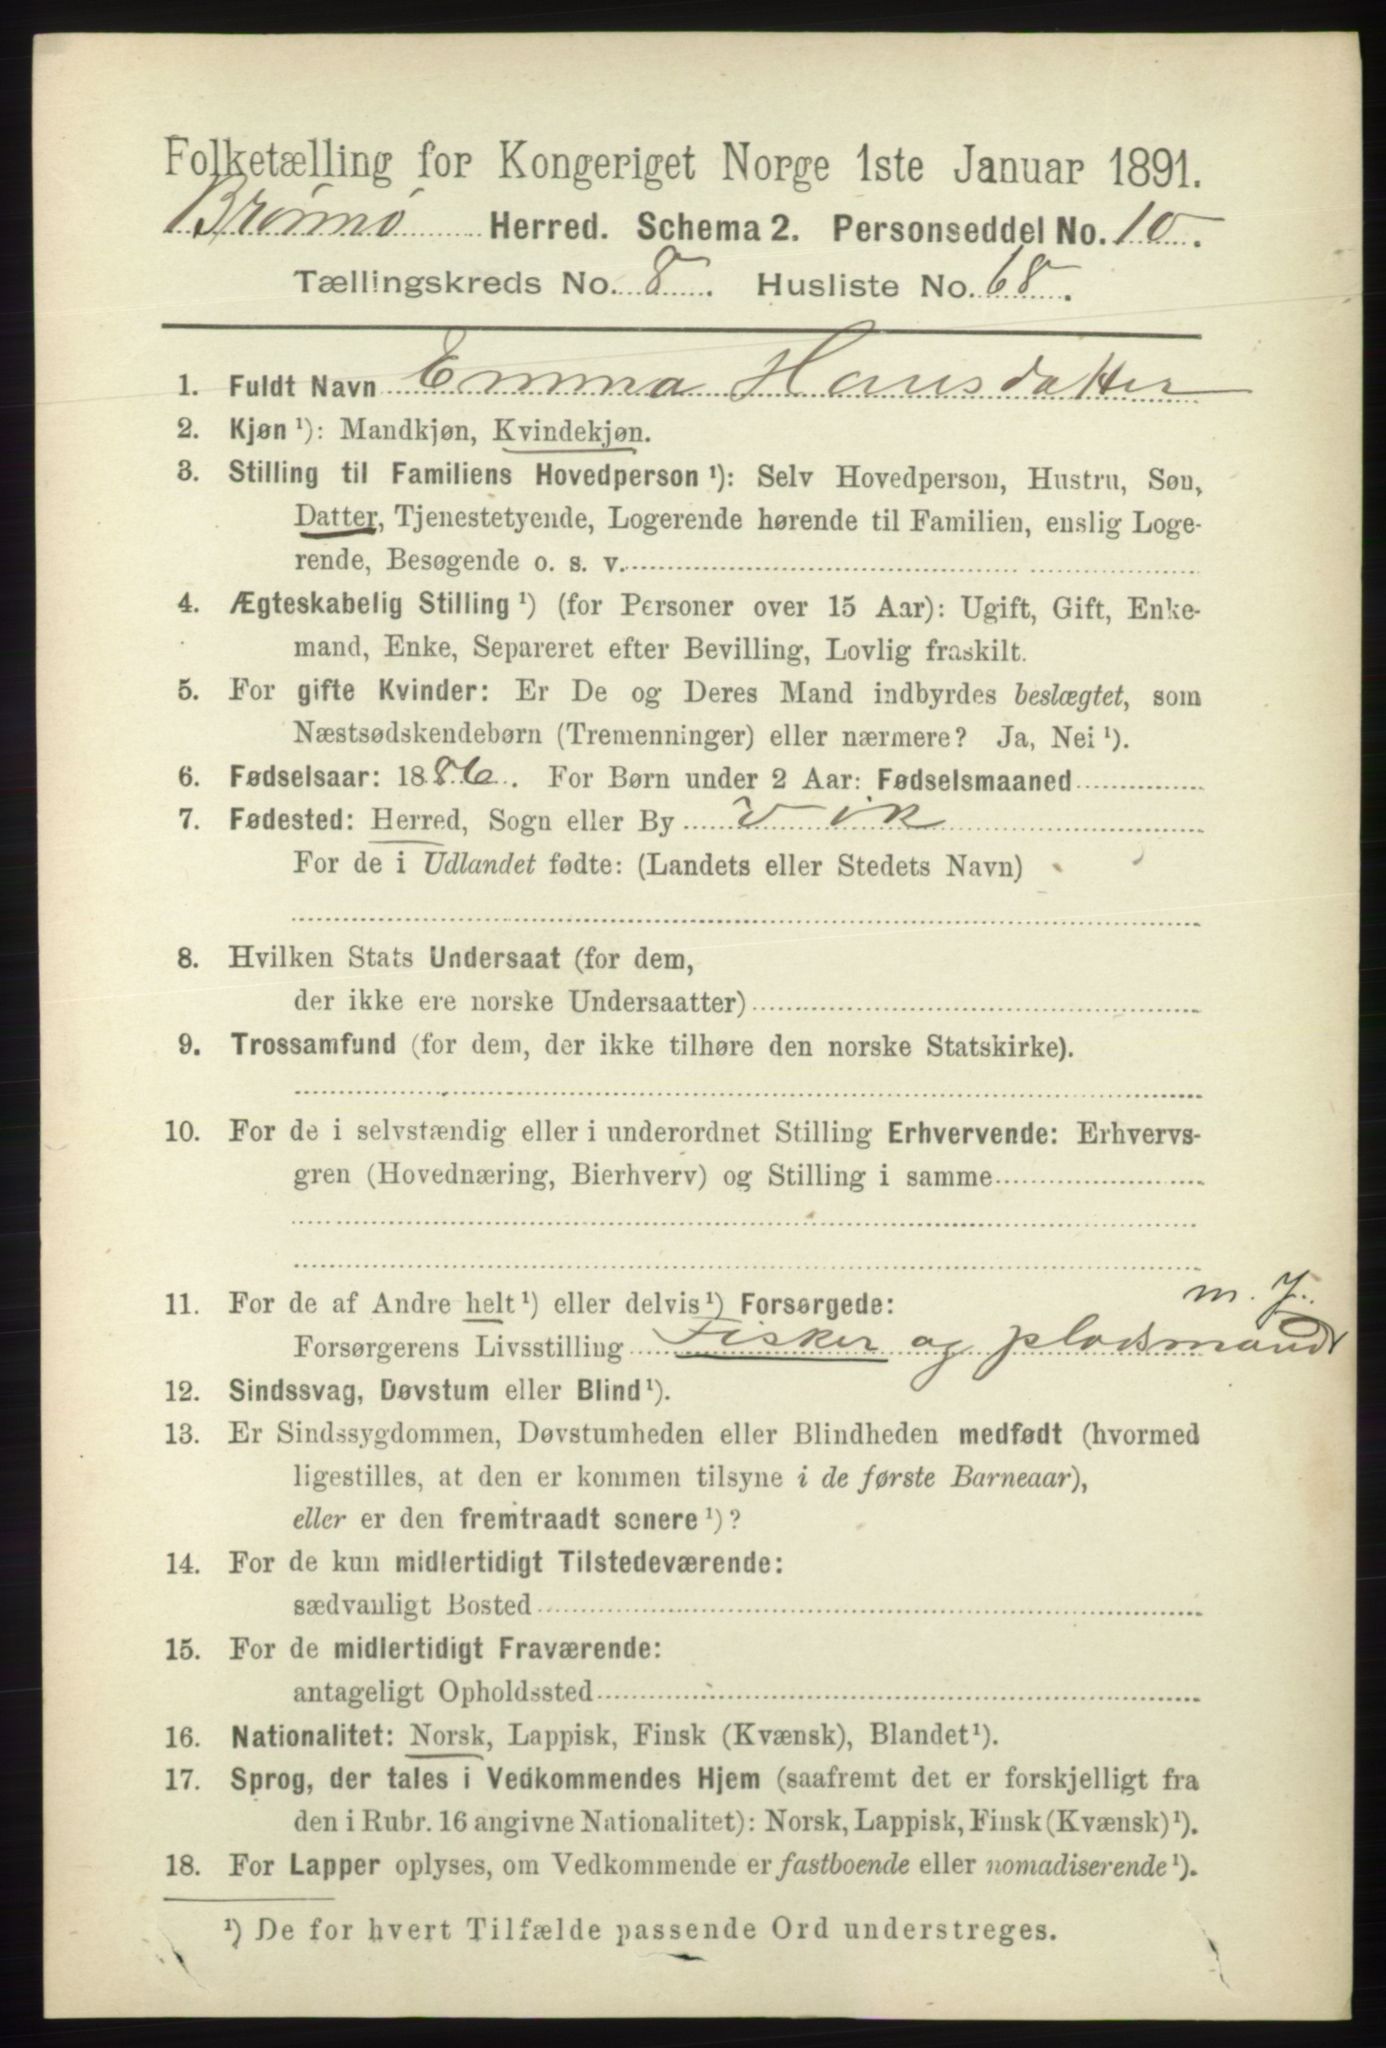 Folketælling for Kongeriget Norge 1ste Januar 1891.
Brønnø Herred. Schema 2. Personseddel No. 10.
Tællingskreds No. 8. Husliste No. 68.
1. Fuldt Navn Emma Hansdatter
2. Kjøn ¹): Mandkjøn, Kvindekjøn.
3. Stilling til Familiens Hovedperson ¹): Selv Hovedperson, Hustru, Søn,
Datter, Tjenestetyende, Logerende hørende til Familien, enslig Loge-
rende, Besøgende o. s. v.
4. Ægteskabelig Stilling ¹) (for Personer over 15 Aar): Ugift, Gift, Enke-
mand, Enke, Separeret efter Bevilling, Lovlig fraskilt.
5. For gifte Kvinder: Er De og Deres Mand indbyrdes beslægtet, som
Næstsødskendebørn (Tremenninger) eller nærmere? Ja, Nei ¹).
6. Fødselsaar: 1886. For Børn under 2 Aar: Fødselsmaaned
7. Fødested: Herred, Sogn eller By Vik
For de i Udlandet fødte: (Landets eller Stedets Navn)
8. Hvilken Stats Undersaat (for dem,
der ikke ere norske Undersaatter)
9. Trossamfund (for dem, der ikke tilhøre den norske Statskirke).
10. For de i selvstændig eller i underordnet Stilling Erhvervende: Erhvervs-
gren (Hovednæring, Bierhverv) og Stilling i samme
11. For de af Andre helt ¹) eller delvis ¹) Forsørgede:
m. J.
Forsørgerens Livsstilling Fisker og pladsmand
12. Sindssvag, Døvstum eller Blind ¹).
13. Er Sindssygdommen, Døvstumheden eller Blindheden medfødt (hvormed
ligestilles, at den er kommen tilsyne i de første Barneaar),
eller er den fremtraadt senere ¹)?
14. For de kun midlertidigt Tilstedeværende:
sædvanligt Bosted
15. For de midlertidigt Fraværende:
antageligt Opholdssted
16. Nationalitet: Norsk, Lappisk, Finsk (Kvænsk), Blandet ¹).
17. Sprog, der tales i Vedkommendes Hjem (saafremt det er forskjelligt fra
den i Rubr. 16 angivne Nationalitet): Norsk, Lappisk, Finsk (Kvænsk) ¹).
18. For Lapper oplyses, om Vedkommende er fastboende eller nomadiserende ¹).
¹) De for hvert Tilfælde passende Ord understreges.